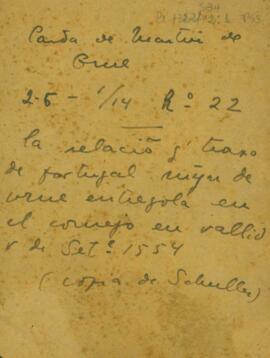 Carta de Martin de
Orue
2-5-1/14 Rº 22
la relaciō q' traxo
de portugal min de
orue entregola en
el consejo en vallid
r de Setº 1554
(copia de Schuller)